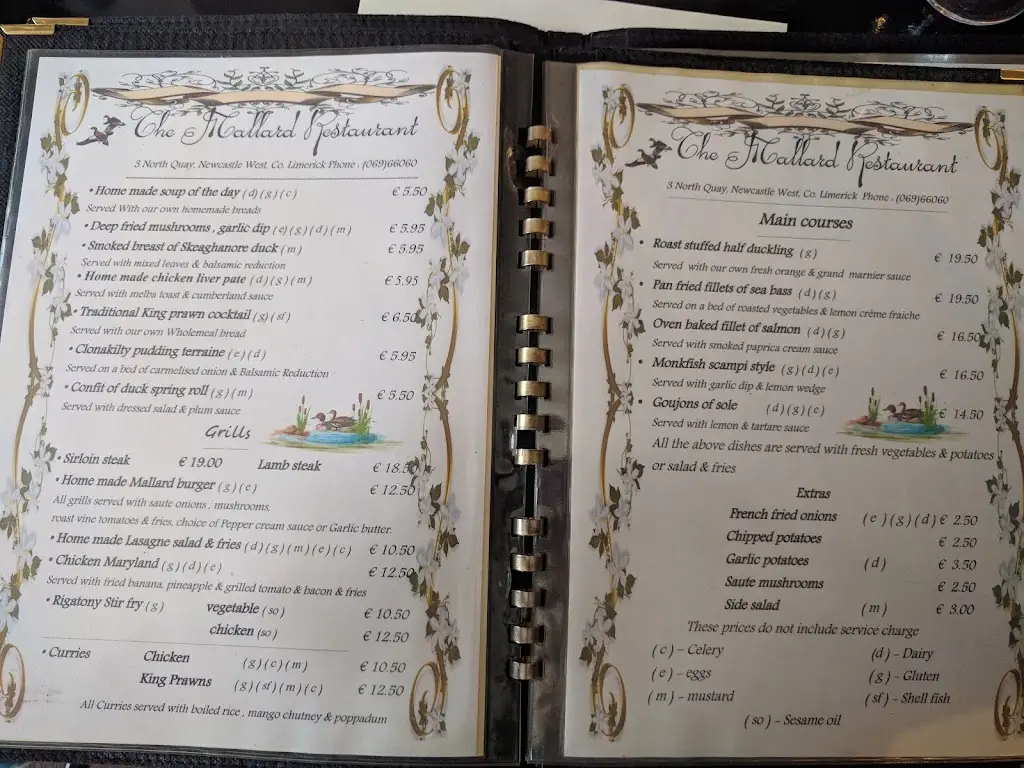 The Mallard Restaurant
3 North Quay, Newcastle West, Co. Limerick Phone : (069)66060
• Home made soup of the day ( d ) ( g ) ( c ) € 5.50
Served With our own homemade breads
• Deep fried mushrooms , garlic dip ( e ) ( g ) ( d ) ( m ) € 5.95
• Smoked breast of Skeaghanore duck ( m ) € 5.95
Served with mixed leaves & balsamic reduction
• Home made chicken liver pate ( d ) ( g ) ( m ) € 5.95
Served with melba toast & cumberland sauce
• Traditional King prawn cocktail ( g ) ( sf ) € 6.50
Served with our own Wholemeal bread
• Clonakilty pudding terraine ( e ) ( d ) € 5.95
Served on a bed of carmelised onion & Balsamic Reduction
• Confit of duck spring roll ( g ) ( m ) € 5.50
Served with dressed salad & plum sauce
Grills
• Sirloin steak € 19.00 Lamb steak € 18.50
• Home made Mallard burger ( g ) ( e ) € 12.50
All grills served with saute onions , mushrooms,
roast vine tomatoes & fries, choice of Pepper cream sauce or Garlic butter.
• Home made Lasagne salad & fries ( d ) ( g ) ( m ) ( e ) ( c ) € 10.50
• Chicken Maryland ( g ) ( d ) ( e ) € 12.50
Served with fried banana, pineapple & grilled tomato & bacon & fries
• Rigatony Stir fry ( g ) vegetable ( so ) € 10.50
chicken (so) € 12.50
• Curries Chicken ( g ) ( c ) ( m ) € 10.50
King Prawns ( g ) ( sf ) ( m ) ( c ) € 12.50
All Curries served with boiled rice , mango chutney & poppadum
The Mallard Restaurant
3 North Quay, Newcastle West, Co. Limerick Phone : (069)66060
Main courses
• Roast stuffed half duckling ( g ) € 19.50
Served with our own fresh orange & grand marnier sauce
• Pan fried fillets of sea bass ( d ) ( g ) € 19.50
Served on a bed of roasted vegetables & lemon crème fraiche
• Oven baked fillet of salmon ( d ) ( g ) € 16.50
Served with smoked paprica cream sauce
• Monkfish scampi style ( g ) ( d ) ( e ) € 16.50
Served with garlic dip & lemon wedge
• Goujons of sole ( d ) ( g ) ( e ) € 14.50
Served with lemon & tartare sauce
All the above dishes are served with fresh vegetables & potatoes
or salad & fries
Extras
French fried onions ( e ) ( g ) ( d ) € 2.50
Chipped potatoes € 2.50
Garlic potatoes ( d ) € 3.50
Saute mushrooms € 2.50
Side salad ( m ) € 3.00
These prices do not include service charge
( c ) - Celery (d) - Dairy
( e ) - eggs ( g ) - Gluten
( m ) - mustard ( sf ) - Shell fish
( so ) - Sesame oil